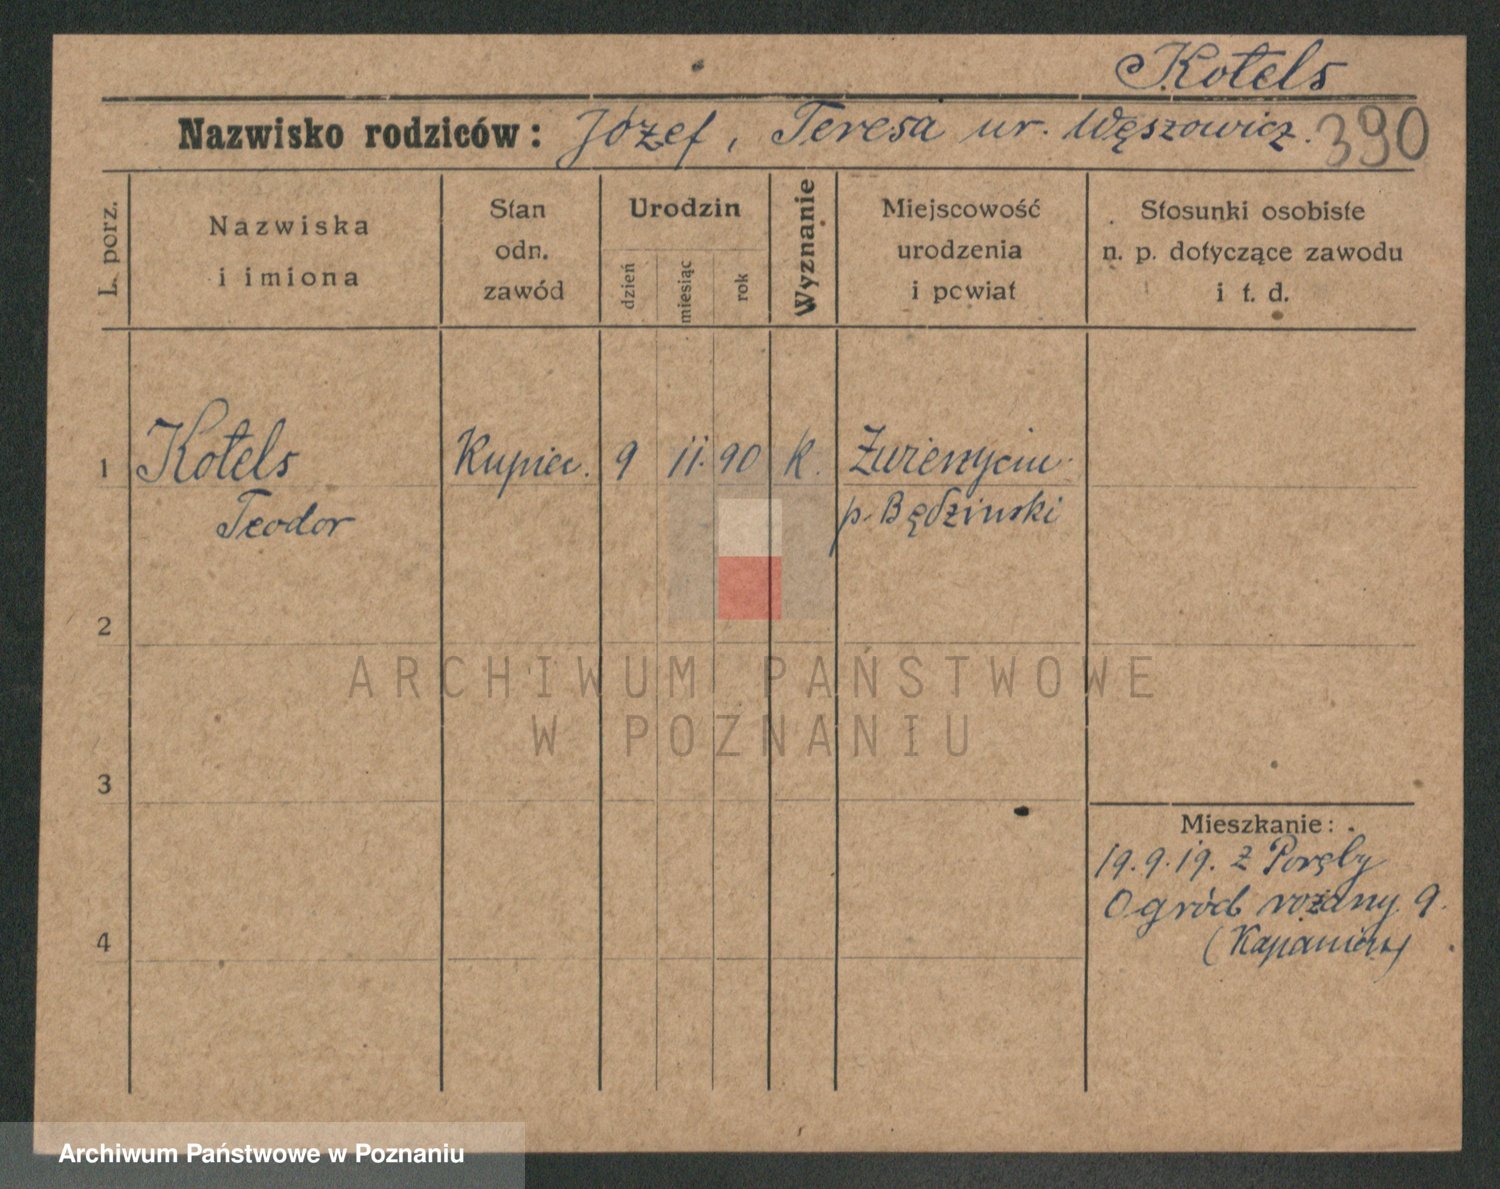 Kotels
Nazwisko rodziców: Józef, Teresa ur. Węszowicz. 390
L. porz.
Nazwiska
i imiona
Stan
odn.
zawód
Urodzin
dzień
miesiąc
rok
Wyznanie
Miejscowość
urodzenia
i powiat
Stosunki osobiste
n. p. dotyczące zawodu
i t. d.
1 Kotels Kupiec. 9 11. 90 k.
Teodor p. Będzinski
2
3
4
Mieszkanie:
19.9.19. z Poręby
Ogród rożany 9.
ARCHIWUM PAŃSTWOWE
W POZNANIU
Archiwum Państwowe w Poznaniu